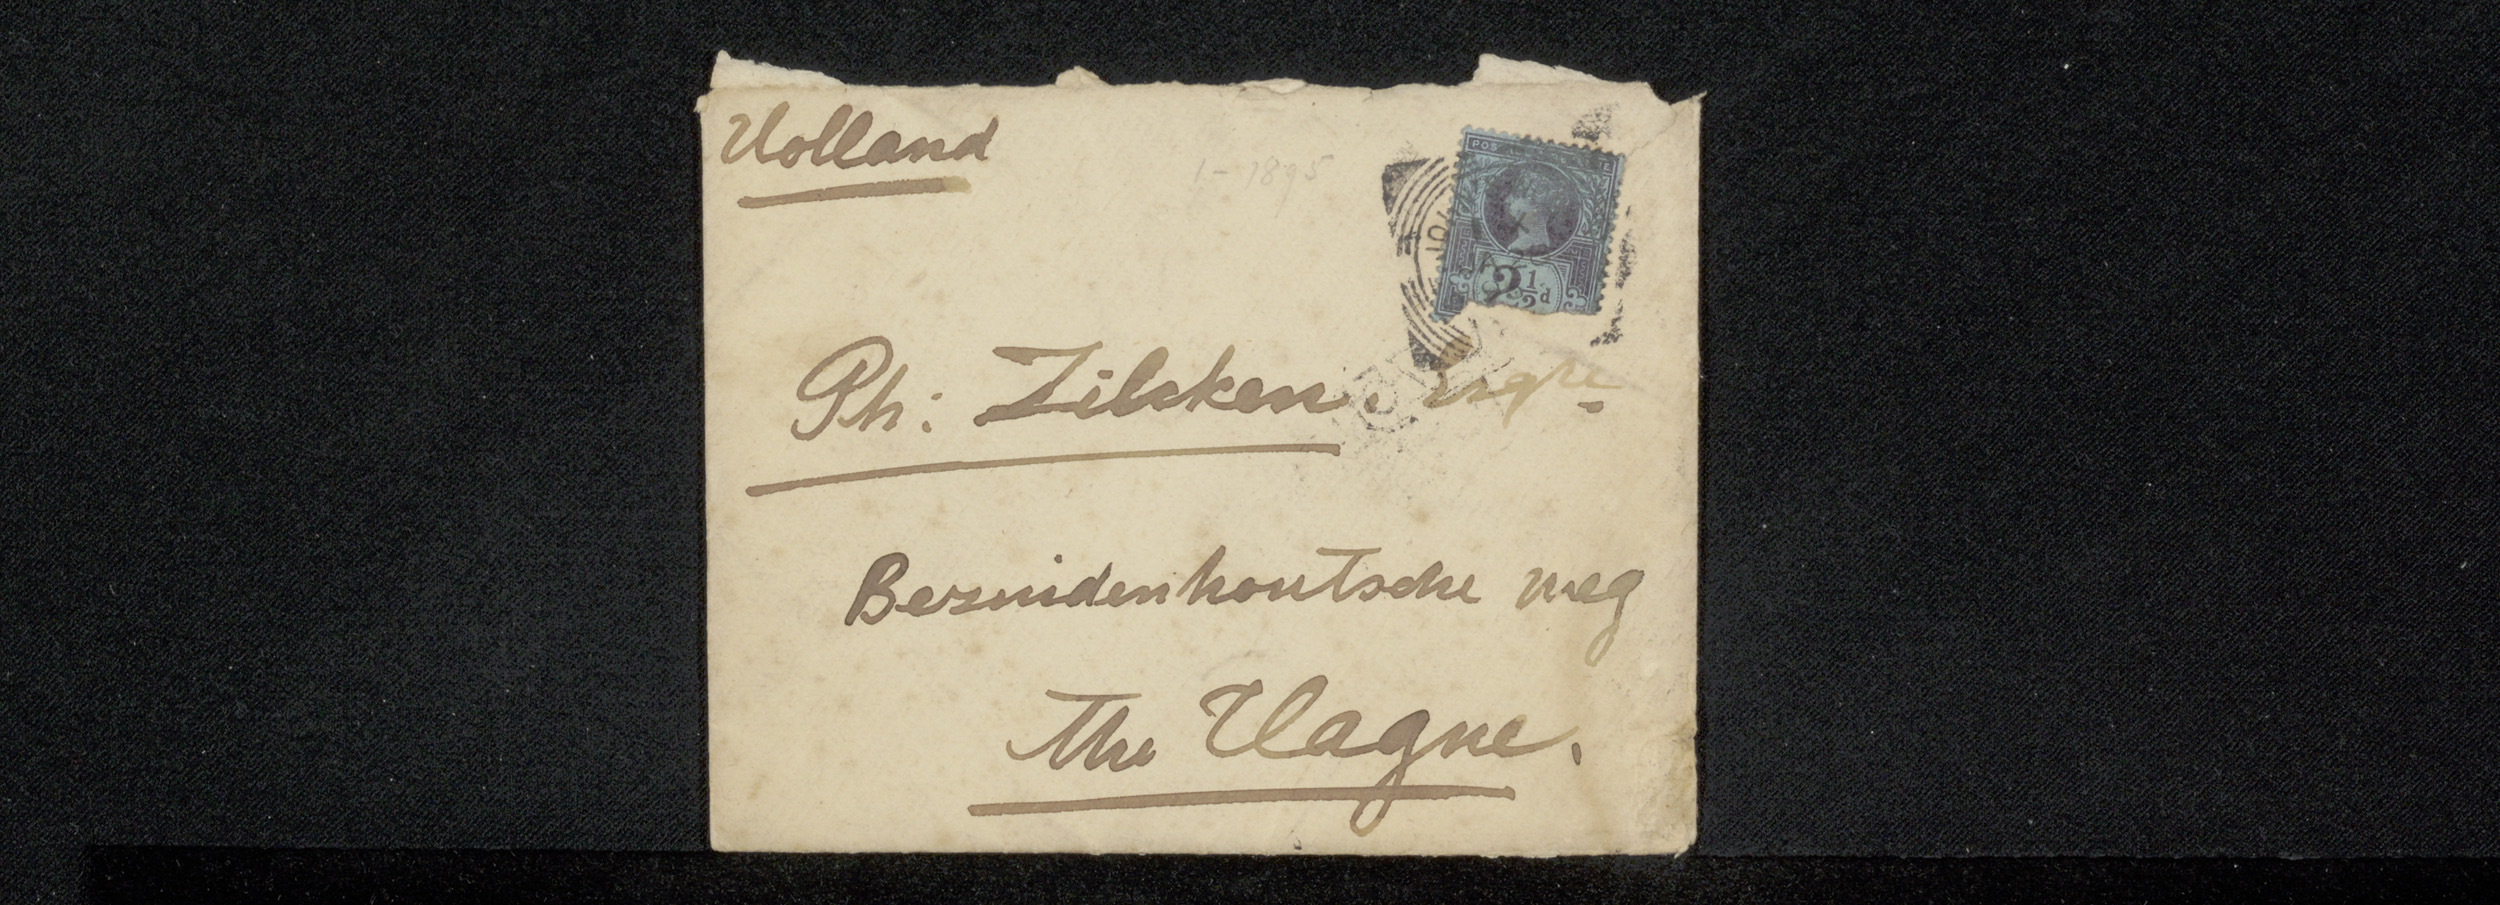 Holland
1-1895
POS
E
2½d
Ph: Zilcken. Esqre
Bezuidenhoutsche weg
The Hague.